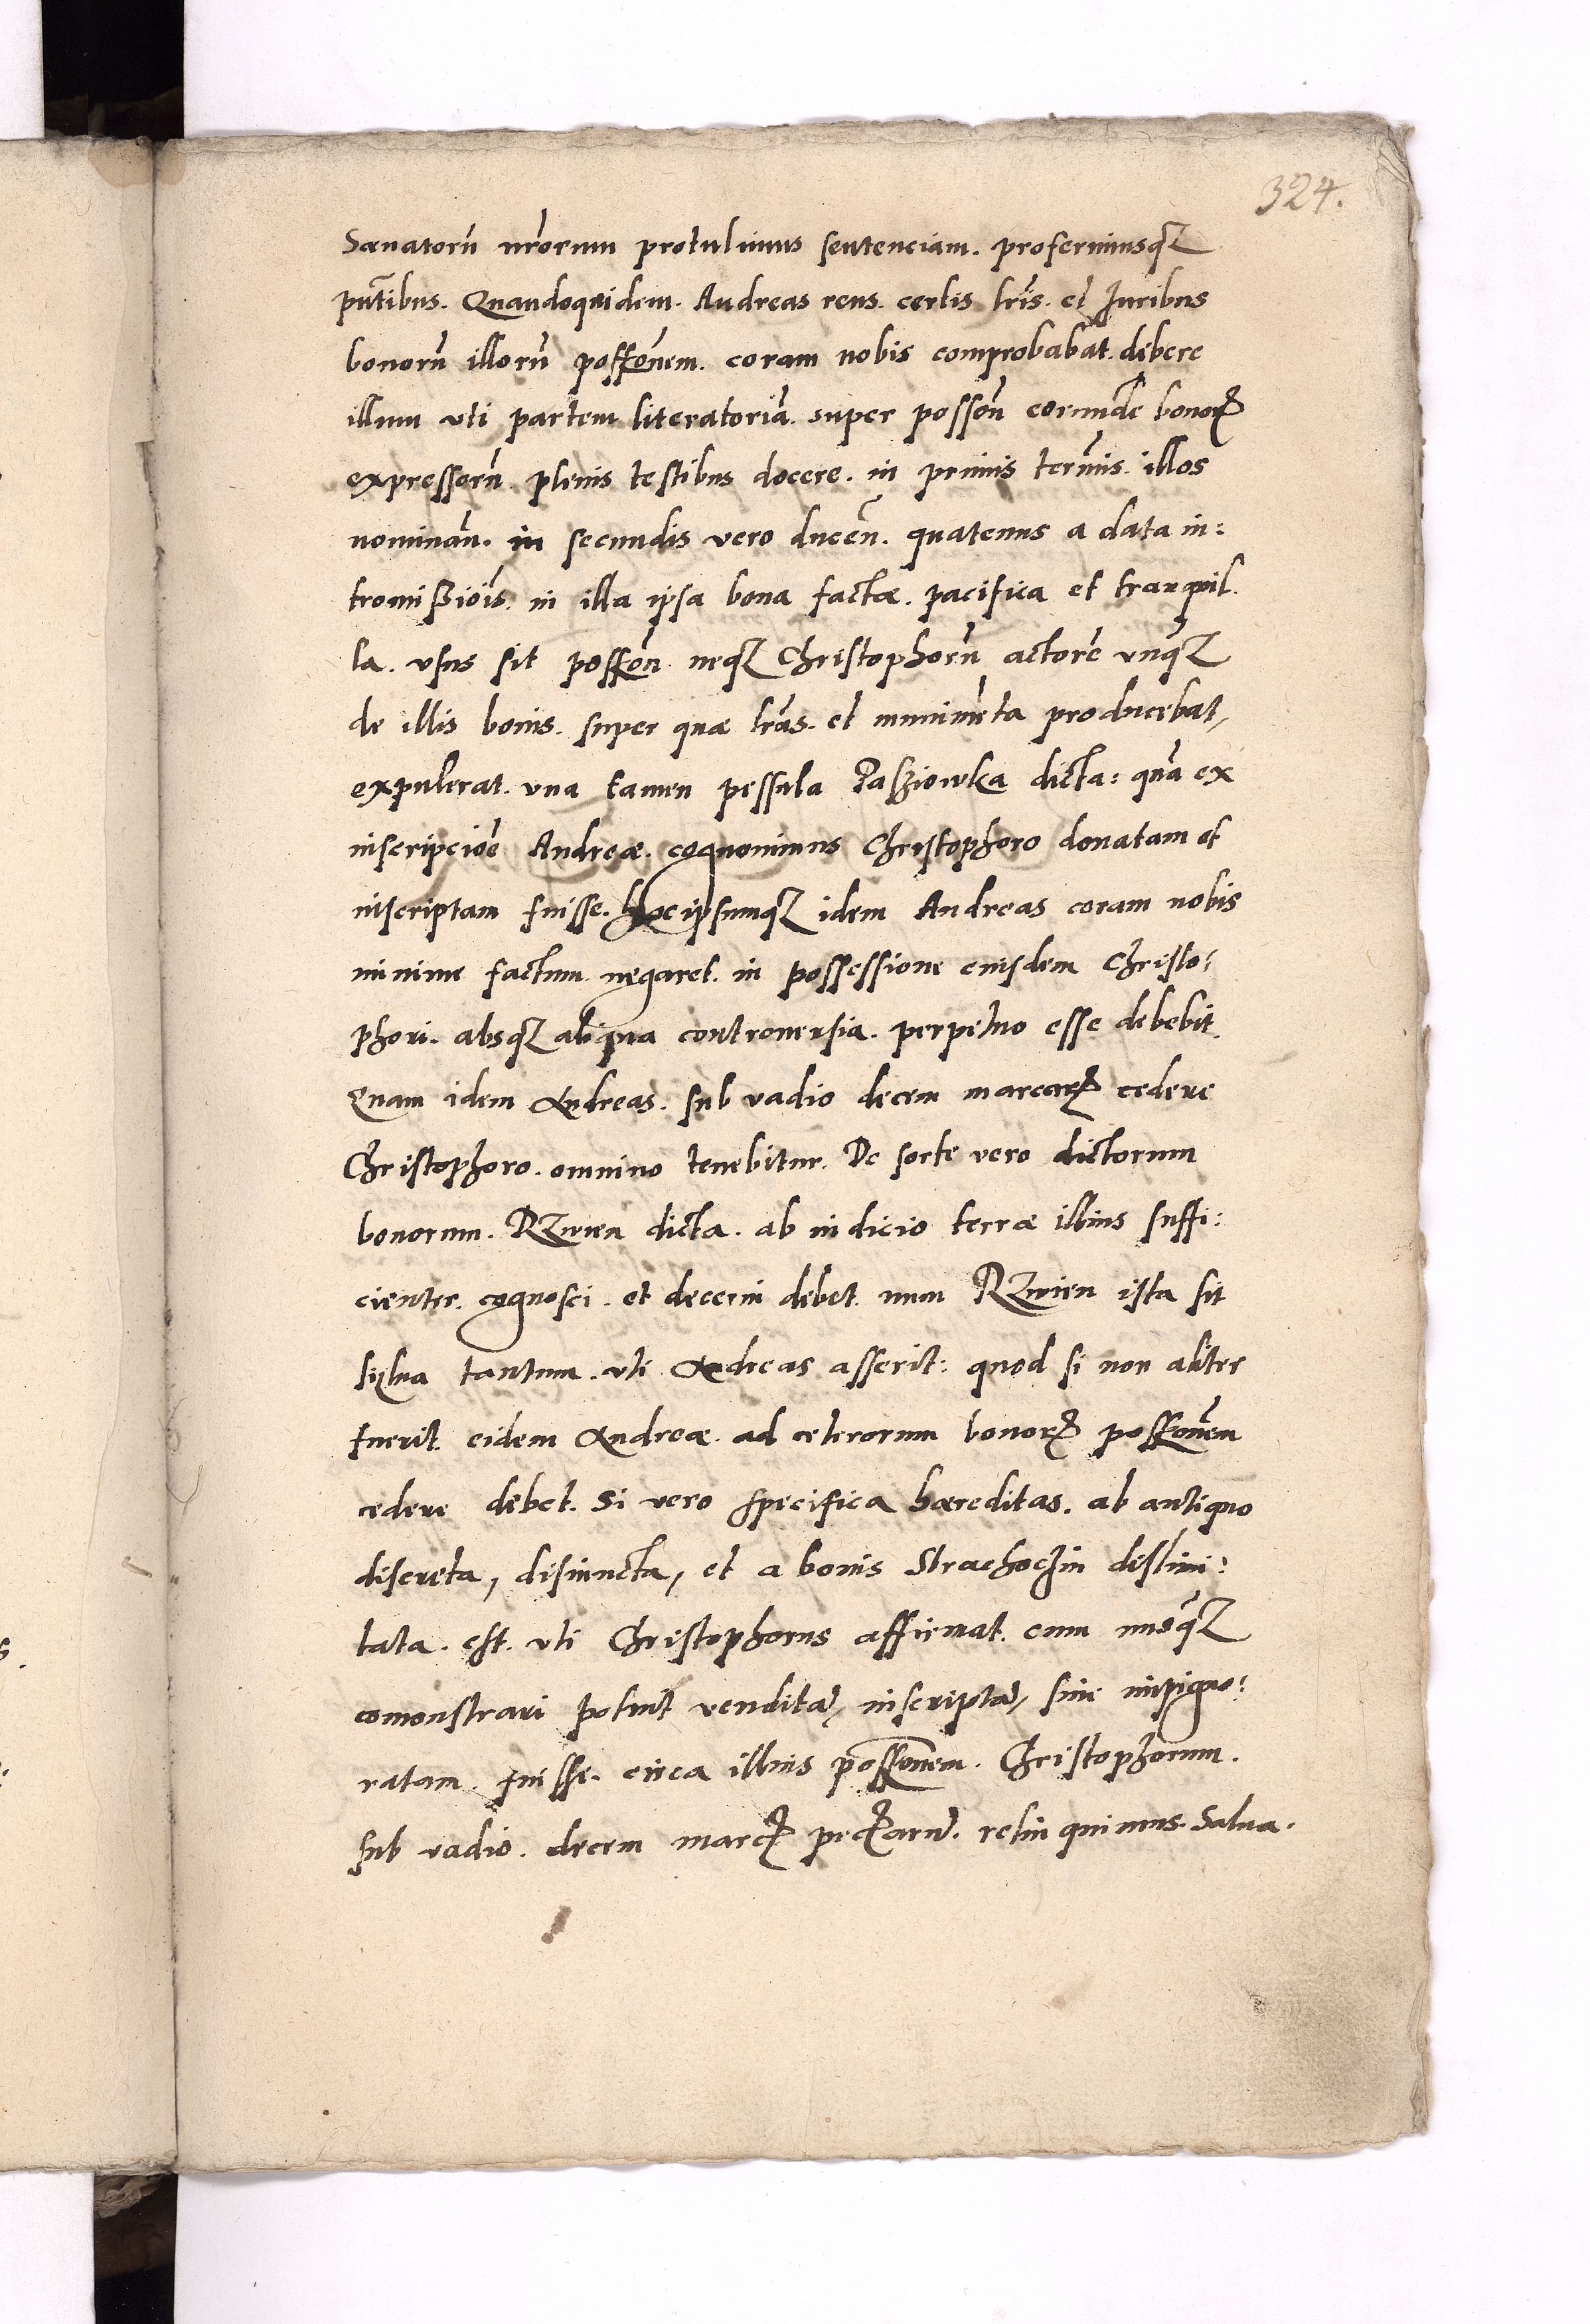 324.
Senatorū nr̄orum protulimus sentenciam. proferimusqȝ
pn̄tibus. Quandoquidem. Andreas reus. certis lr̄is. et Juribus
bonorū illorū possōnem. coram nobis comprobabat. debere
illum vti partem literatoriā. super possōn eorundē bonorꝝ
expressorū. plenis testibus docere. in primis term̄is. illos
nominān. in secundis vero ducēn. quatenus a data in:
tromißiōis. in illa ipsa bona factæ. pacifica et tranquil.
la. vsus sit possōn neqȝ Christophorū actorē vnqȝ
de illis bonis. super quæ lr̄as. et munimēta producebat,
expulerat. vna tamen pessula Paßiowka dicta: quā ex
inscripciōe Andreæ. cognouimus Christophoro donatam et
inscriptam fuisse. hocipsumqȝ idem Andreas coram nobis
minime factum negaret. in possessione eiusdem Christo:
phori. absqȝ aliqua controuersia. perpetuo esse debebit.
Quam idem Andreas. sub vadio decem marcarꝝ cedere
Christophoro. omnino tenebitur. De sorte vero dictorum
bonorum. Rzwien dicta. ab iudicio terræ illius suffi:
cienter. cognosci. et decerni debet. num Rzwien ista sit
sylua tantum. vti Andreas asserit: quod si non aliter
fuerit. eidem Andreæ. ad ceterorum bonorꝝ possōnem
cedere debet. Si vero specifica hæreditas. ab antiquo
discreta, disiuncta, et a bonis Strachoczin destimi:
tata. est. vti Christophorus affirmat. cum nusqȝ
comonstrari potuit venditā, inscriptā, siue impigno:
ratam. fuisse. circa illius possōnem. Christophorum.
sub vadio. decem marcꝝ relinquimus. Salua.